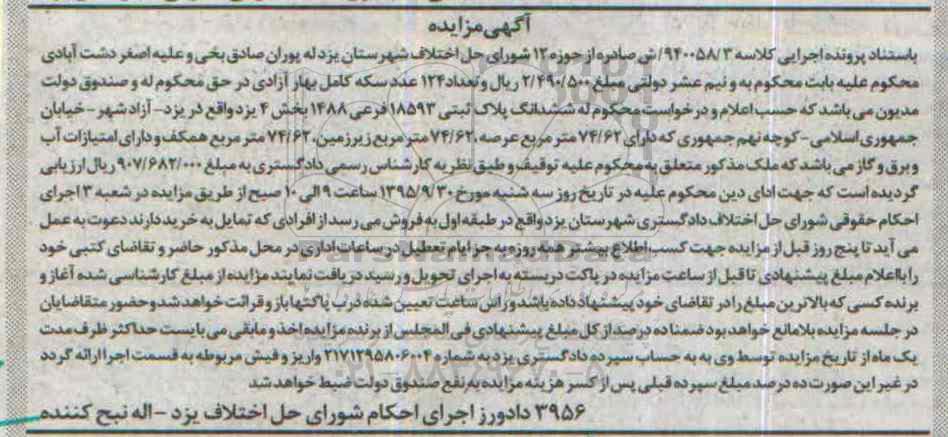 آگهی مزایده
باستناد پرونده اجرایی کلاسه ۹۴۰۰۵۸/۳/ ش صادره از حوزه ۱۲ شورای حل اختلاف شهرستان یزد له پوران صادق بخی و علیه اصغر دشت آبادی
محکوم علیه بابت محکوم به و نیم عشر دولتی مبلغ ۲/۴۹۰/۵۰۰ ریال و تعداد ۱۲۴ عدد سکه کامل بهار آزادی در حق محکوم له و صندوق دولت
مدیون می باشد که حسب اعلام و درخواست محکوم له ششدانگ پلاک ثبتی ۱۸۵۹۳ فرعی ۱۴۸۸ بخش ۴ یزد واقع در یزد- آزادشهر - خیابان
جمهوری اسلامی - کوچه نهم جمهوری که دارای ۷۴/۶۲ متر مربع عرصه ، ۷۴/۶۲ متر مربع زیرزمین ، ۷۴/۶۲ متر مربع همکف و دارای امتیازات آب
و برق و گاز می باشد که ملک مذکور متعلق به محکوم علیه توقیف و طبق نظریه کارشناس رسمی دادگستری به مبلغ ۹۰۷/۶۸۲/۰۰۰ ریال ارزیابی
گردیده است که جهت ادای دین محکوم علیه در تاریخ روز سه شنبه مورخ ۱۳۹۵/۹/۳۰ ساعت ۹ الی ۱۰ صبح از طریق مزایده در شعبه ۳ اجرای
احکام حقوقی شورای حل اختلاف دادگستری شهرستان یزد واقع در طبقه اول به فروش می رسد از افرادی که تمایل به خرید دارند دعوت به عمل
می آید تا پنج روز قبل از مزایده جهت کسب اطلاع بیشتر همه روزه به جز ایام تعطیل در ساعات اداری در محل مذکور حاضر و تقاضای کتبی خود
را با اعلام مبلغ پیشنهادی تا قبل از ساعت مزایده در پاکت دربسته به اجرای تحویل و رسید دریافت نمایند مزایده از مبلغ کارشناسی شده آغاز و
برنده کسی که بالاترین مبلغ را در تقاضای خود پیشنهاد داده باشد و راس ساعت تعیین شده درب پاکتها باز و قرائت خواهد شد و حضور متقاضایان
در جلسه مزایده بلامانع خواهد بود ضمنا ده درصد از کل مبلغ پیشنهادی فی المجلس از برنده مزایده اخذ و مابقی می بایست حداکثر ظرف مدت
یک ماه از تاریخ مزایده توسط وی به به حساب سپرده دادگستری یزد به شماره ۲۱۷۱۲۹۵۸۰۶۰۰۴ واریز و فیش مربوطه به قسمت اجرا ارائه گردد
در غیر این صورت ده درصد مبلغ سپرده قبلی پس از کسر هزینه مزایده به نفع صندوق دولت ضبط خواهد شد
۳۹۵۶ دادورز اجرای احکام شورای حل اختلاف یزد - اله نبح کننده